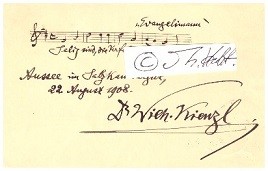 „Evangelimann"
Selig sind, die Verf
© J. H.
Aussee in Salzkammergut,
22. August 1908.
Dr Wilh. Kienzl